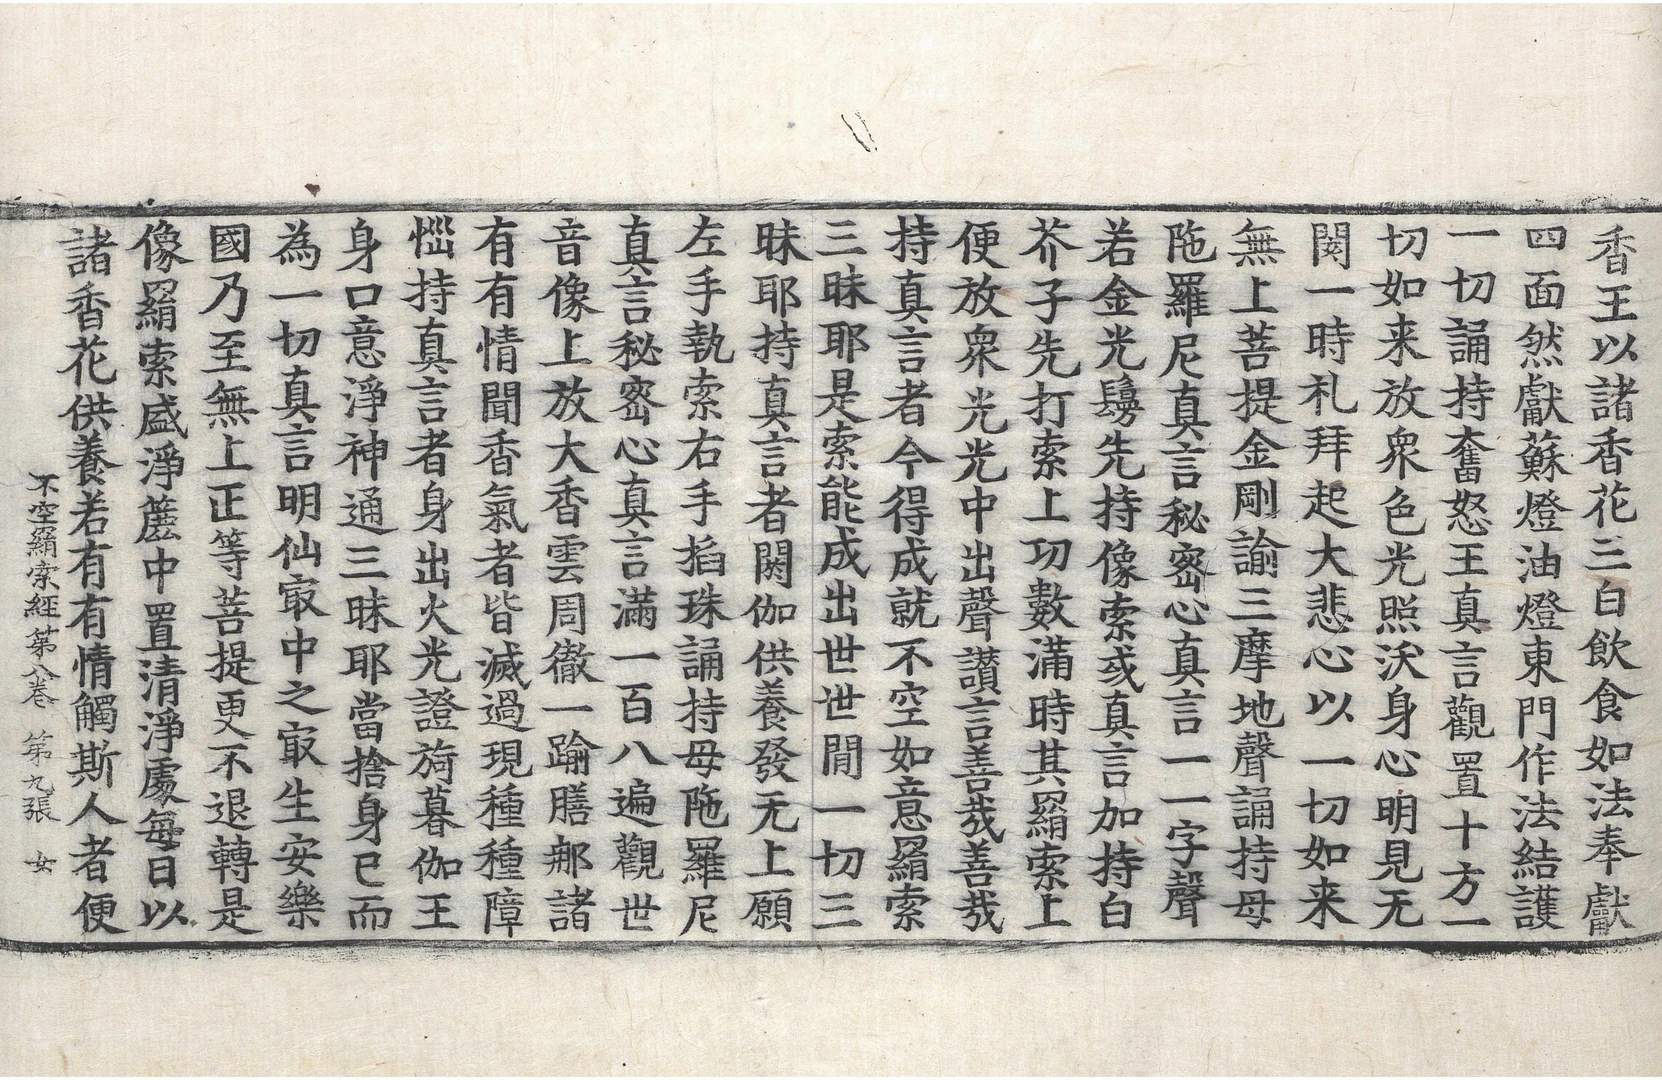 香王以諸香花三白飲食如法奉獻
四面然獻蘇燈油燈東門作法結護
一切誦持奮怒王真言觀置十方一
切如来放衆色光照沃身心明見无
閡一時礼拜起大悲心以一切如来
無上菩提金剛諭三摩地聲誦持母
陁羅尼真言秘密心真言一一字聲
若金光鬘先持像索或真言加持白
芥子先打索上㓛數滿時其羂索上
便放衆光光中出聲讃言善哉善哉
持真言者今得成就不空如意羂索
三昧耶是索能成出世世間一切三
昧耶持真言者閼伽供養發无上願
左手執索右手掐珠誦持母陁羅尼
真言秘密心真言滿一百八遍觀世
音像上放大香雲周徹一踰膳那諸
有有情聞香氣者皆滅過現種種障
惱持真言者身出火光證旖暮伽王
身口意淨神通三昧耶當捨身已而
為一切真言明仙㝡中之㝡生安樂
國乃至無上正等菩提更不退轉是
像羂索盛淨簏中置清淨處每日以
諸香花供養若有有情觸斯人者便
不空羂索經第八卷 第九張 女